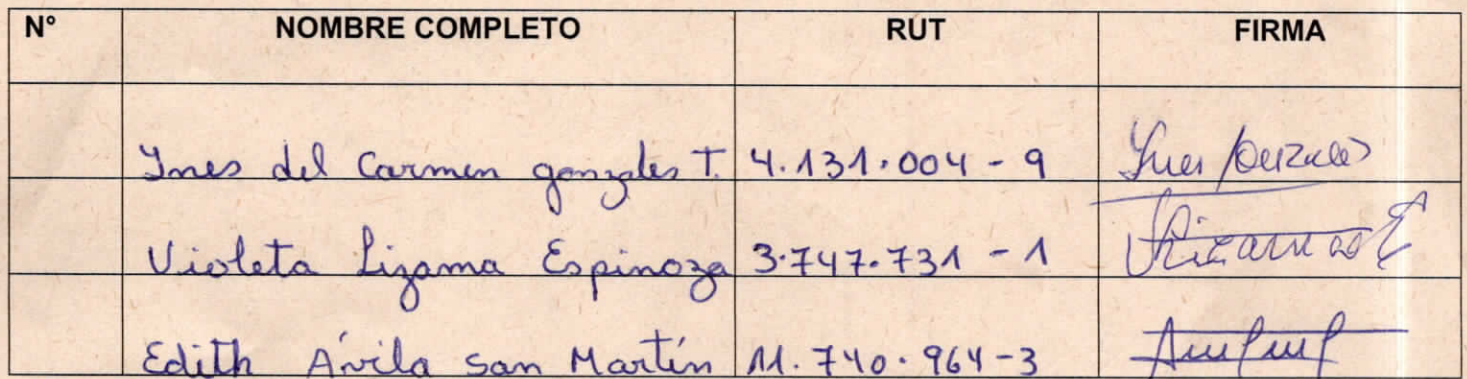 N° NOMBRE COMPLETO RUT FIRMA
Ines del Carmen gonzales T. 4.131.004-9 Ines Gonzales
Violeta Lizama Espinoza 3.747.731-1
Edith Ávila San Martín 11.740.964-3